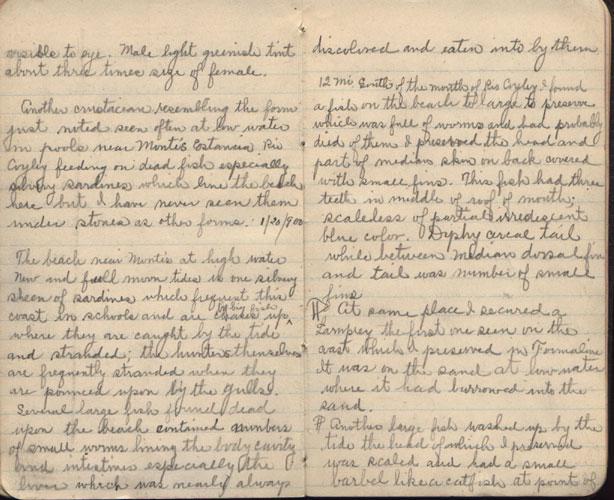 visible to eye. Male light greenish tint
about three times size of female.
Another crustacean resembling the form
just noted seen often at low water
in pools near Montes Estancia Rio
Coyley feeding on dead fish especially
silvery sardines which line the beach
here but I have never seen them
under stones as other forms. 1/20/900
The beach near Montes at high water
New and full moon tides is one silvery
sheen of sardines which frequent this
coast in schools and are chased up by big fish
where they are caught by the tide
and stranded; the hunters themselves
are frequently stranded when they
are pounced upon by the gulls.
Several large fish found dead
upon the beach contained numbers
of small worms lining the body cavity
and intestines especially the
liver which was nearly always
discolored and eaten into by them
12 mi South of the mouth of Rio Coyley I found
a fish on the beach to large to preserve
which was full of worms and had probably
died of them I preserved the head and
part of median skin on back covered
with small fins. This fish had three
teeth in middle of roof of mouth;
scaleless of partial irridescent
blue color. Diphy cercal tail
while between median dorsal fin
and tail was number of small
fins
¶ At same place I secured a
Lamprey the first one seen on the
coast which I preserved in Formaline
It was on the sand at low water
where it had burrowed into the
sand.
¶ Another large fish washed up by the
tide the head of which I preserved
was scaled and had a small
barbel like a catfish at point of